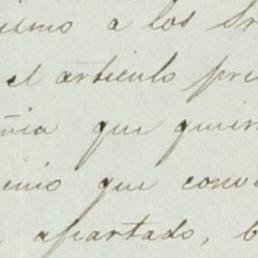 ismo a los Sr
el articulo pre
ñia que quier
enio que conv
apartado, b